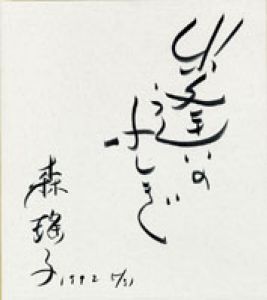 出逢いの
ふしぎ
森瑤子
1992